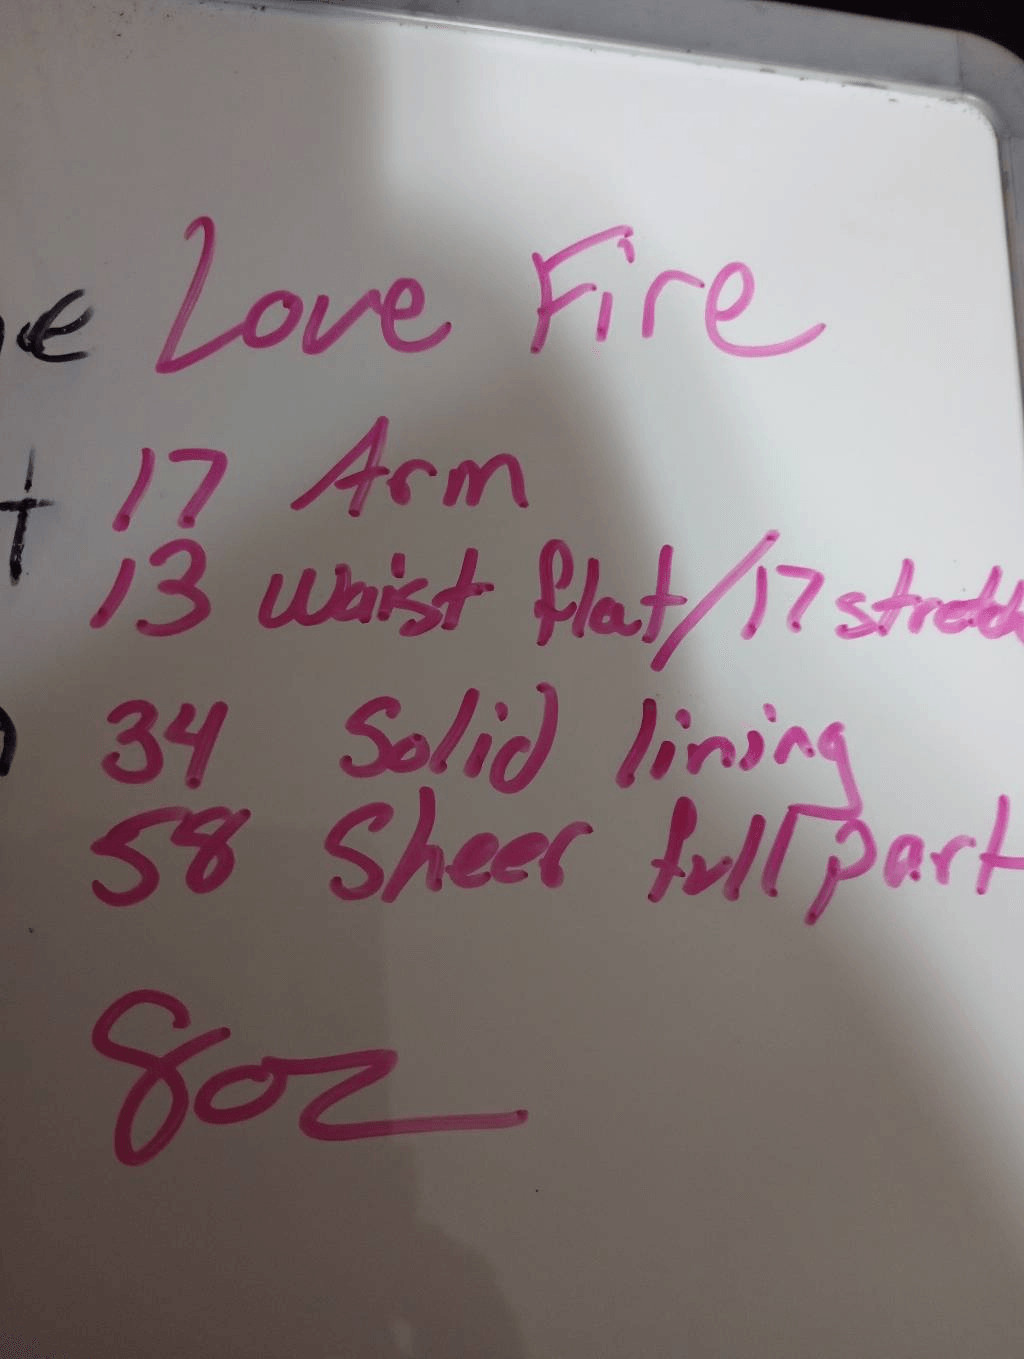 Love Fire
17 Arm
13 waist flat/17
34 Solid lining
58 Sheer full part
8oz